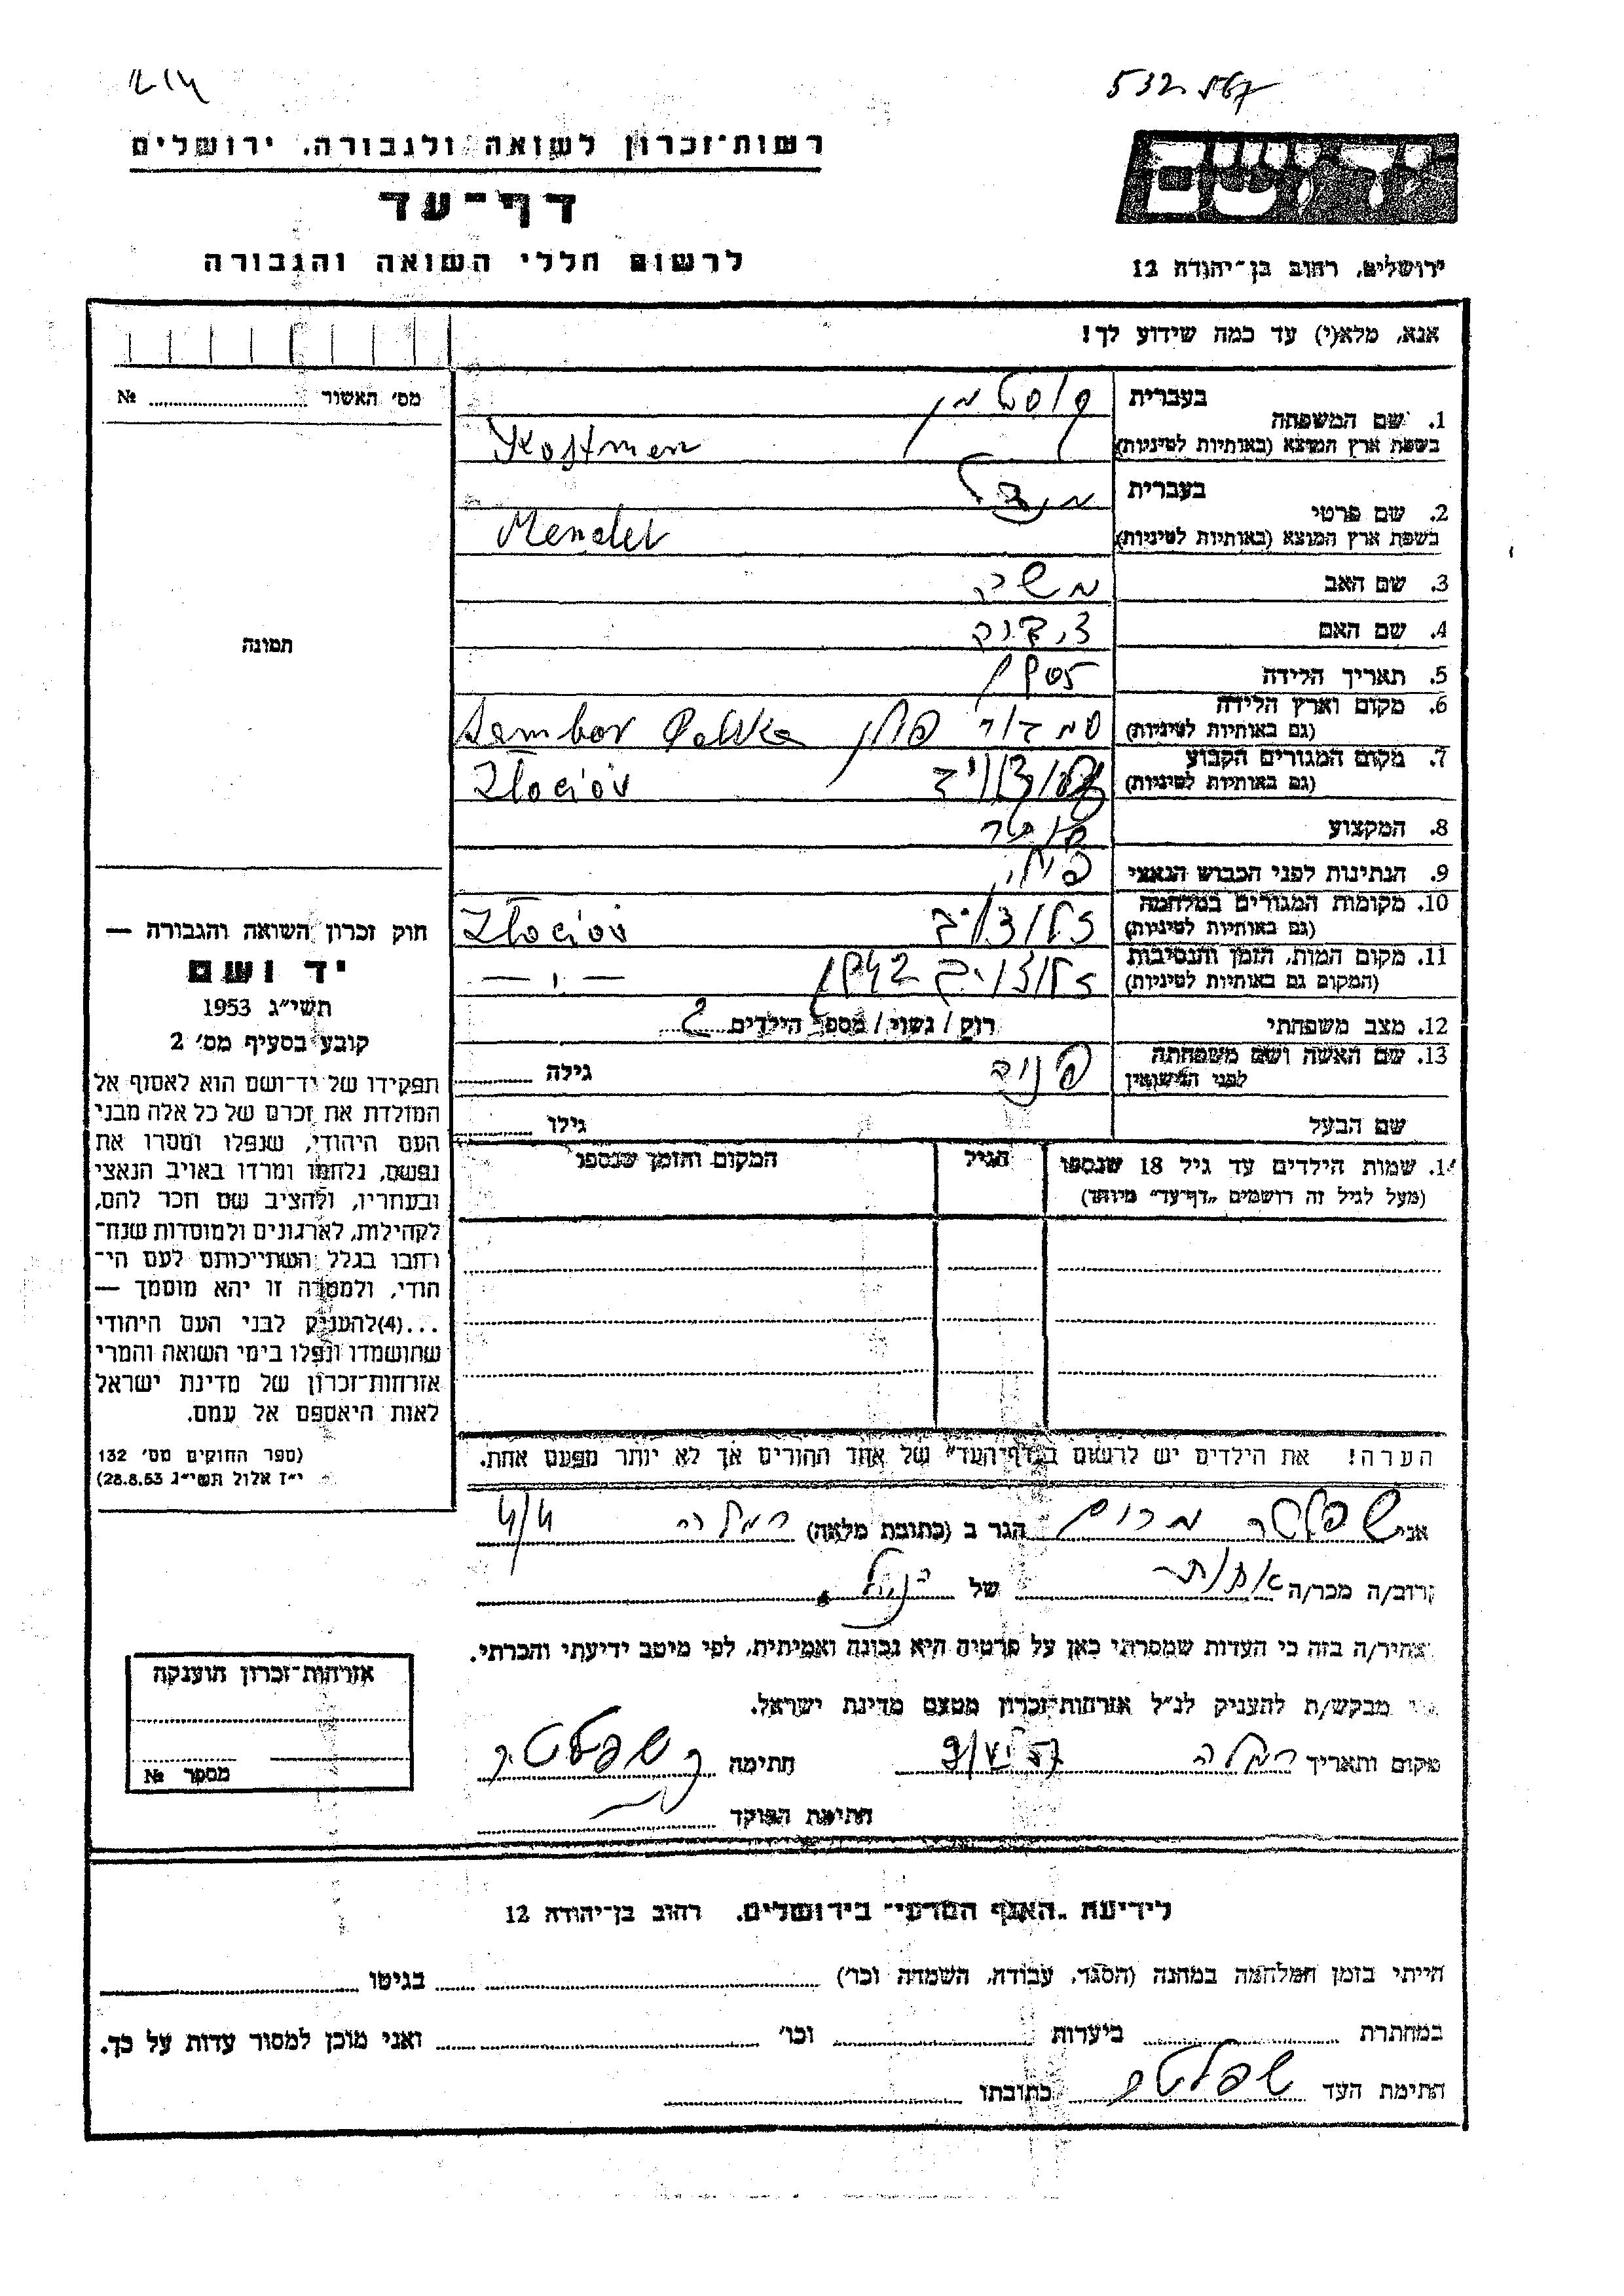 רשות־זכרון לשואה ולגבורה, ירושלים
דף־עד
לרשום חללי השואה והגבורה
יד ושם
ירושלים, רחוב בן־יהודה 12
אנא, מלא(י) עד כמה שידוע לך!
מס׳ האשור № ........
תמונה
1. שם המשפחה
בעברית קוסטמן
בשפת ארץ המוצא (באותיות לטיניות) Kostman
2. שם פרטי
בעברית מנדל
בשפת ארץ המוצא (באותיות לטיניות) Mendel
3. שם האב משה
4. שם האם
5. תאריך הלידה
6. מקום וארץ הלידה
(גם באותיות לטיניות) סמבור פולין Sambor Polska
7. מקום המגורים הקבוע
(גם באותיות לטיניות) Złociów
8. המקצוע
9. הנתינות לפני הכבוש הנאצי
10. מקומות המגורים במלחמה
(גם באותיות לטיניות) זלוצוב Złociów
11. מקום המות, הזמן והנסיבות
(המקום גם באותיות לטיניות) זלוצוב 1942 — ״ —
12. מצב משפחתי רוק / נשוי / מספר הילדים 2
13. שם האשה ושם משפחתה
לפני הנישואין גילה ........
שם הבעל גילו ........
14. שמות הילדים עד גיל 18 שנספו הגיל המקום והזמן שנספו
(מעל לגיל זה רושמים „דף־עד״ מיוחד)
הערה! את הילדים יש לרשום ב„דף־העד״ של אחד ההורים אך לא יותר מפעם אחת.
חוק זכרון השואה והגבורה —
יד ושם
תשי״ג 1953
קובע בסעיף מס׳ 2
תפקידו של יד־ושם הוא לאסוף אל
המולדת את זכרם של כל אלה מבני
העם היהודי, שנפלו ומסרו את
נפשם, נלחמו ומרדו באויב הנאצי
ובעוזריו, ולהציב שם וזכר להם,
לקהילות, לארגונים ולמוסדות שנח־
רבו בגלל השתייכותם לעם הי־
הודי, ולמטרה זו יהא מוסמך —
...(4)להעניק לבני העם היהודי
שהושמדו ונפלו בימי השואה והמרי
אזרחות־זכרון של מדינת ישראל
לאות היאספם אל עמם.
(ספר החוקים מס׳ 132
י״ז אלול תשי״ג 28.8.53)
אני שפלטר מרים הגר ב (כתובת מלאה) רמלה
קרוב/ה מכר/ה אחות של הנ״ל
מצהיר/ה בזה כי העדות שמסרתי כאן על פרטיה היא נכונה ואמיתית, לפי מיטב ידיעתי והכרתי.
מבקש/ת להעניק לנ״ל אזרחות־זכרון מטעם מדינת ישראל.
מקום ותאריך רמלה חתימה שפלטר
חתימת הפוקד
אזרחות־זכרון הוענקה
מספר №
לידיעת „האגף המדעי״ בירושלים, רחוב בן־יהודה 12
הייתי בזמן המלחמה במחנה (הסגר, עבודה, השמדה וכו׳) ........ בגיטו ........
במחתרת ........ ביערות ........ וכו׳ ........ ואני מוכן למסור עדות על כך.
חתימת העד שפלטר כתובתו ........